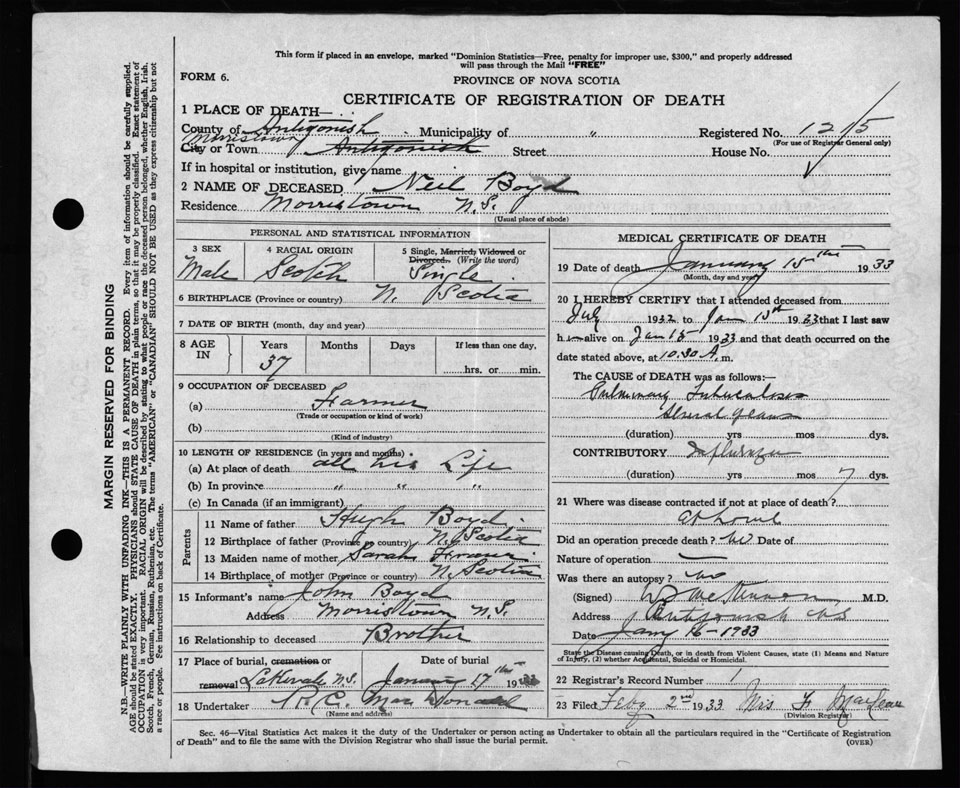 This form if placed in an envelope, marked "Dominion Statistics—Free, penalty for improper use, $300," and properly addressed
will pass through the Mail "FREE"
FORM 6.
PROVINCE OF NOVA SCOTIA
CERTIFICATE OF REGISTRATION OF DEATH
1 PLACE OF DEATH—
County of Antigonish Municipality of " Registered No. 1215
(For use of Registrar General only)
Morristown
City or Town Antigonish Street House No.
If in hospital or institution, give name
2 NAME OF DECEASED Neil Boyd
Residence Morristown N.S.
(Usual place of abode)
PERSONAL AND STATISTICAL INFORMATION
3 SEX 4 RACIAL ORIGIN 5 Single, Married, Widowed or
Divorced. (Write the word)
Male Scotch Single
6 BIRTHPLACE (Province or country) N. Scotia
7 DATE OF BIRTH (month, day and year)
8 AGE IN Years Months Days If less than one day,
37 hrs. or min.
9 OCCUPATION OF DECEASED
(a) Farmer
(Trade or occupation or kind of work)
(b)
(Kind of industry)
10 LENGTH OF RESIDENCE (in years and months)
(a) At place of death all his Life
(b) In province " " "
(c) In Canada (if an immigrant)
Parents
11 Name of father Hugh Boyd
12 Birthplace of father (Province or country) N. Scotia
13 Maiden name of mother Sarah
14 Birthplace of mother (Province or country) N. Scotia
15 Informant's name John Boyd
Address Morristown N.S.
16 Relationship to deceased Brother
17 Place of burial, cremation or Date of burial
removal Lakevale N.S. January 17 1933
18 Undertaker R.C. MacDonald
(Name and address)
MEDICAL CERTIFICATE OF DEATH
19 Date of death January 15th 1933
(Month, day and year)
20 I HEREBY CERTIFY that I attended deceased from
July 1932 to Jan 15th 1933 that I last saw
him alive on Jan 15 1933 and that death occurred on the
date stated above, at 10.30 A.m.
The CAUSE of DEATH was as follows:—
Pulmonary Tuberculosis
Several years
(duration) yrs mos dys.
CONTRIBUTORY Influenza
(duration) yrs mos 7 dys.
21 Where was disease contracted if not at place of death?
at home
Did an operation precede death? no Date of
Nature of operation —
Was there an autopsy? no
(Signed) M.D.
Address Antigonish N.S.
Date Jany 16 - 1933
State the Disease causing Death, or in death from Violent Causes, state (1) Means and Nature
of Injury, (2) whether Accidental, Suicidal or Homicidal.
22 Registrar's Record Number 1
23 Filed Feby 2nd 1933 Mrs F MacLean
(Division Registrar)
Sec. 46—Vital Statistics Act makes it the duty of the Undertaker or person acting as Undertaker to obtain all the particulars required in the "Certificate of Registration
of Death" and to file the same with the Division Registrar who shall issue the burial permit.
(OVER)
MARGIN RESERVED FOR BINDING
N.B.—WRITE PLAINLY WITH UNFADING INK—THIS IS A PERMANENT RECORD. Every item of information should be carefully supplied.
AGE should be stated EXACTLY. PHYSICIANS should STATE CAUSE OF DEATH in plain terms, so that it may be properly classified. Exact statement of
OCCUPATION is very important. RACIAL ORIGIN will be described by stating to what people or race the deceased person belonged, whether English, Irish,
Scotch, French, German, Russian, Ruthenian, etc. The terms "AMERICAN" or "CANADIAN" SHOULD NOT BE USED as they express citizenship but not
a race or people. See instructions on back of Certificate.